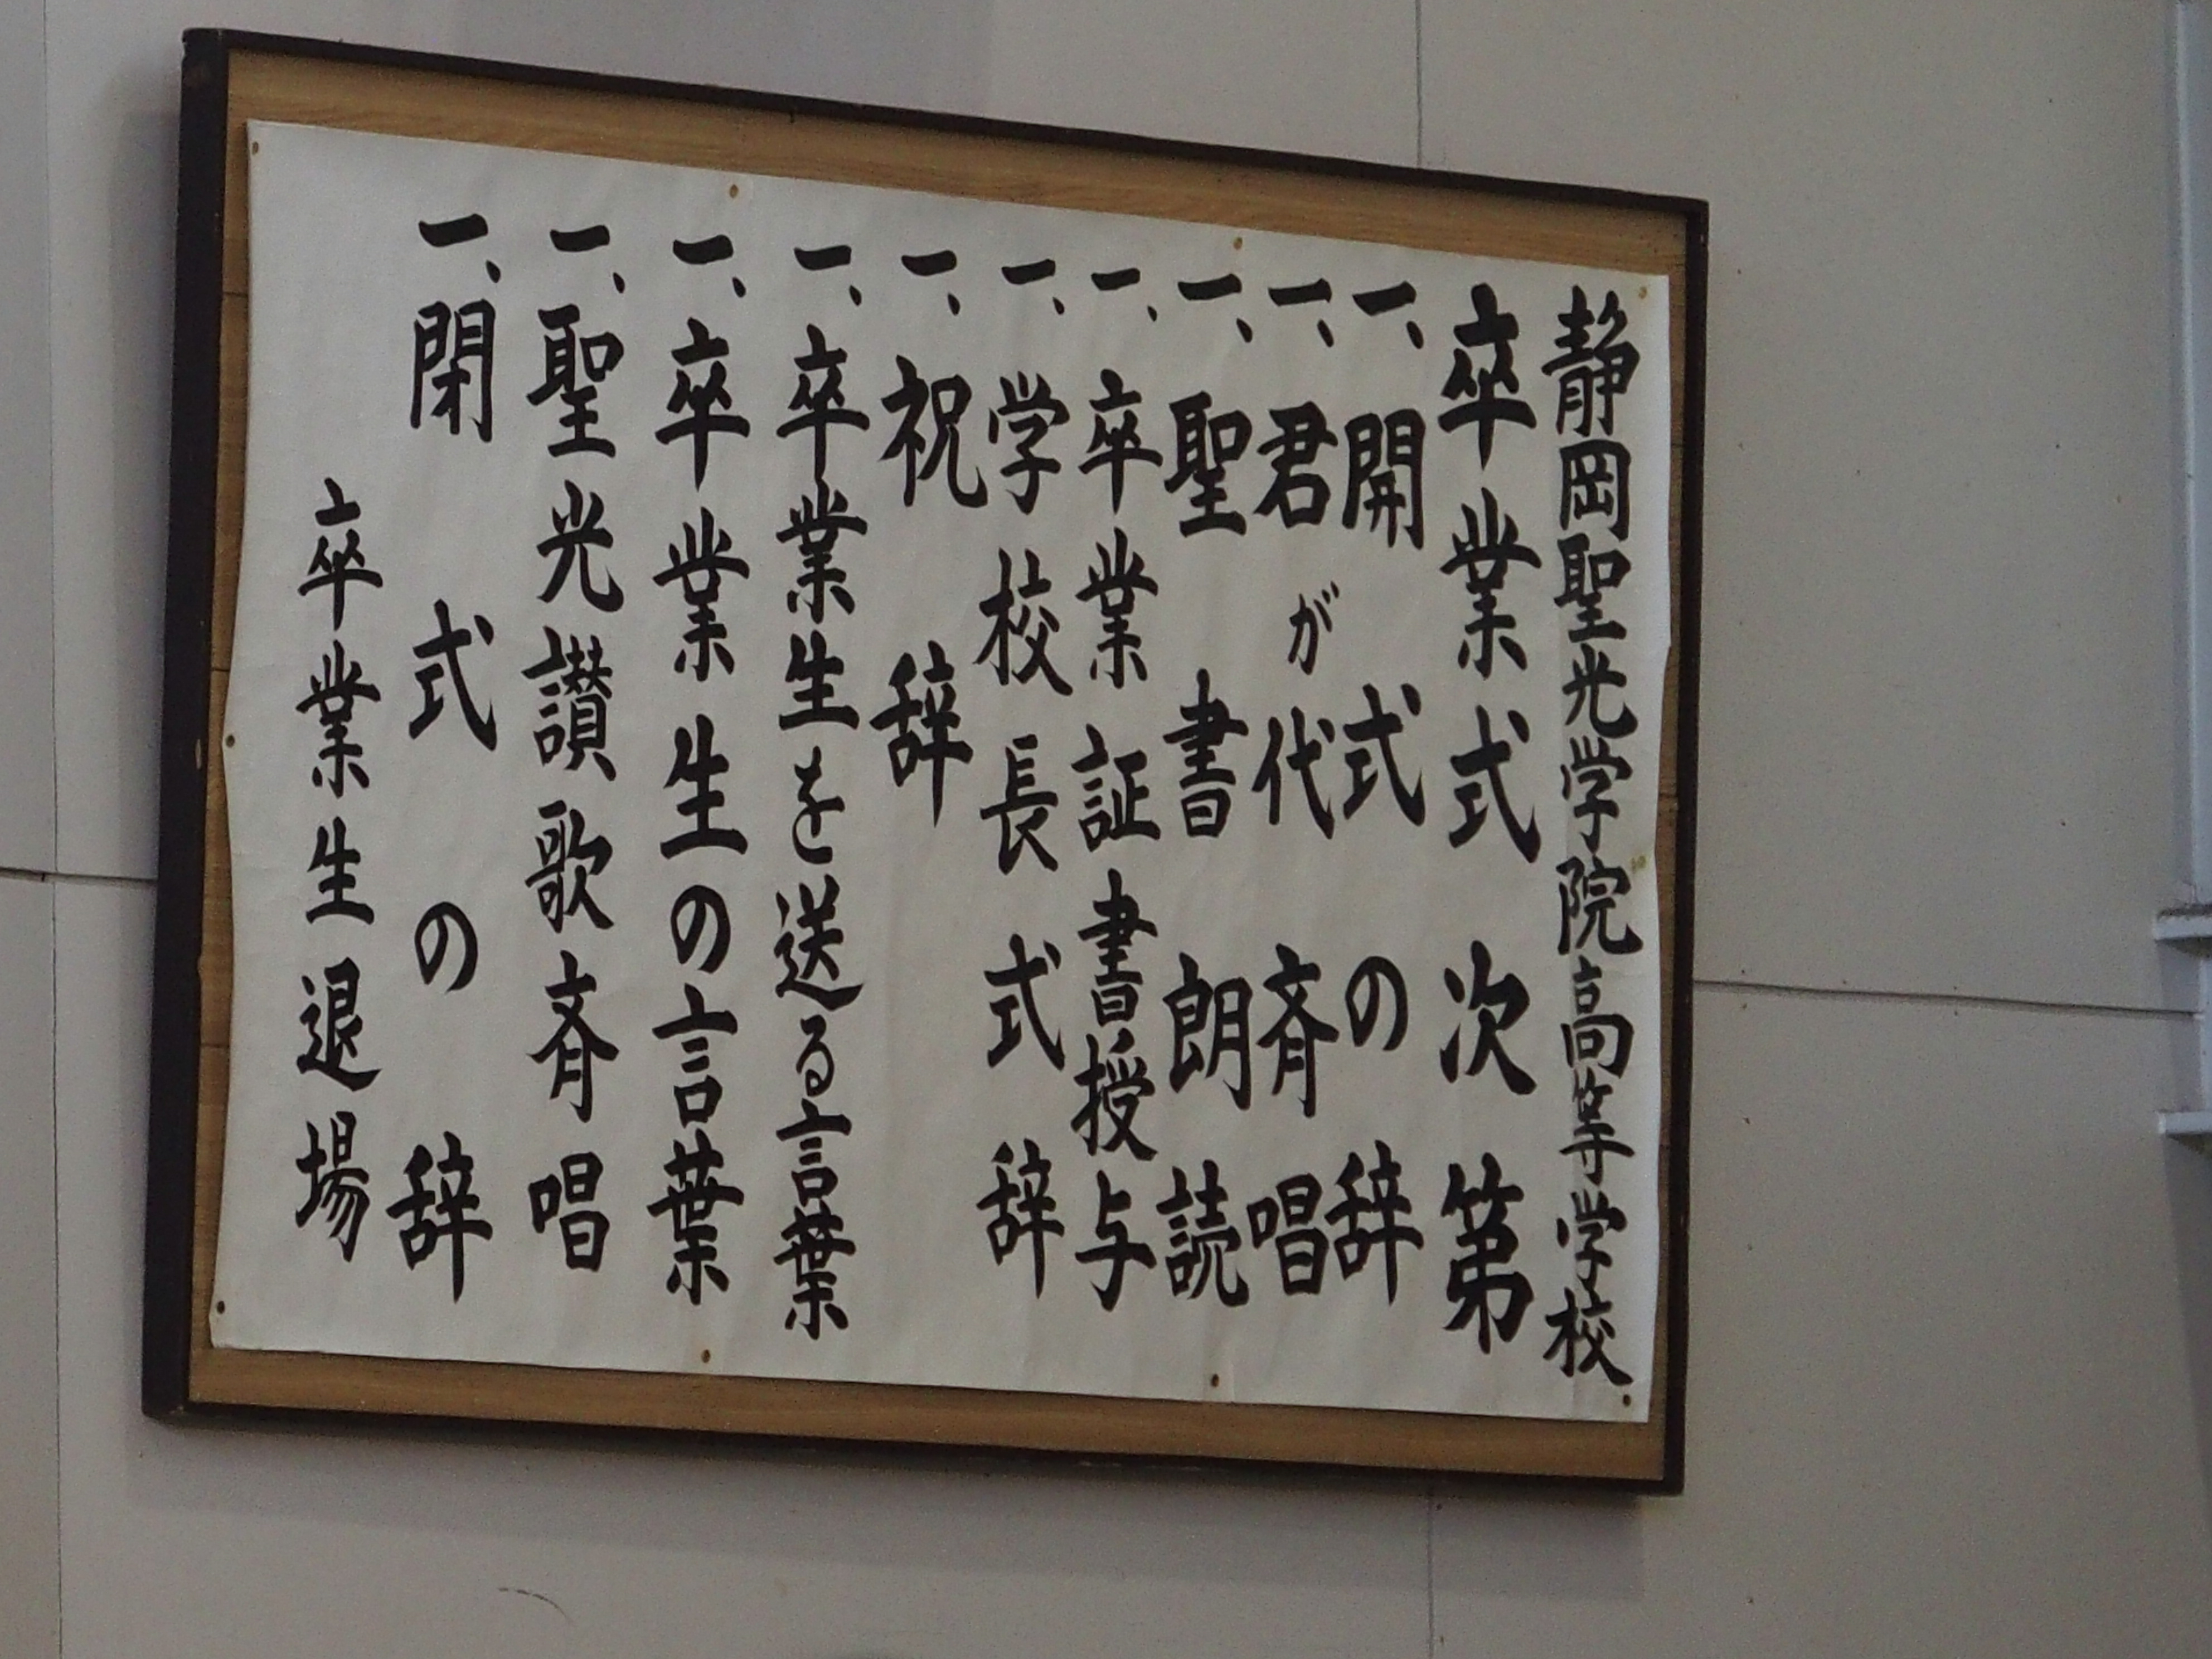 静岡聖光学院高等学校
卒業式次第
一、開式の辞
一、君が代斉唱
一、聖書朗読
一、卒業証書授与
一、学校長式辞
一、祝辞
一、卒業生を送る言葉
一、卒業生の言葉
一、聖光讃歌斉唱
一、閉式の辞
卒業生退場